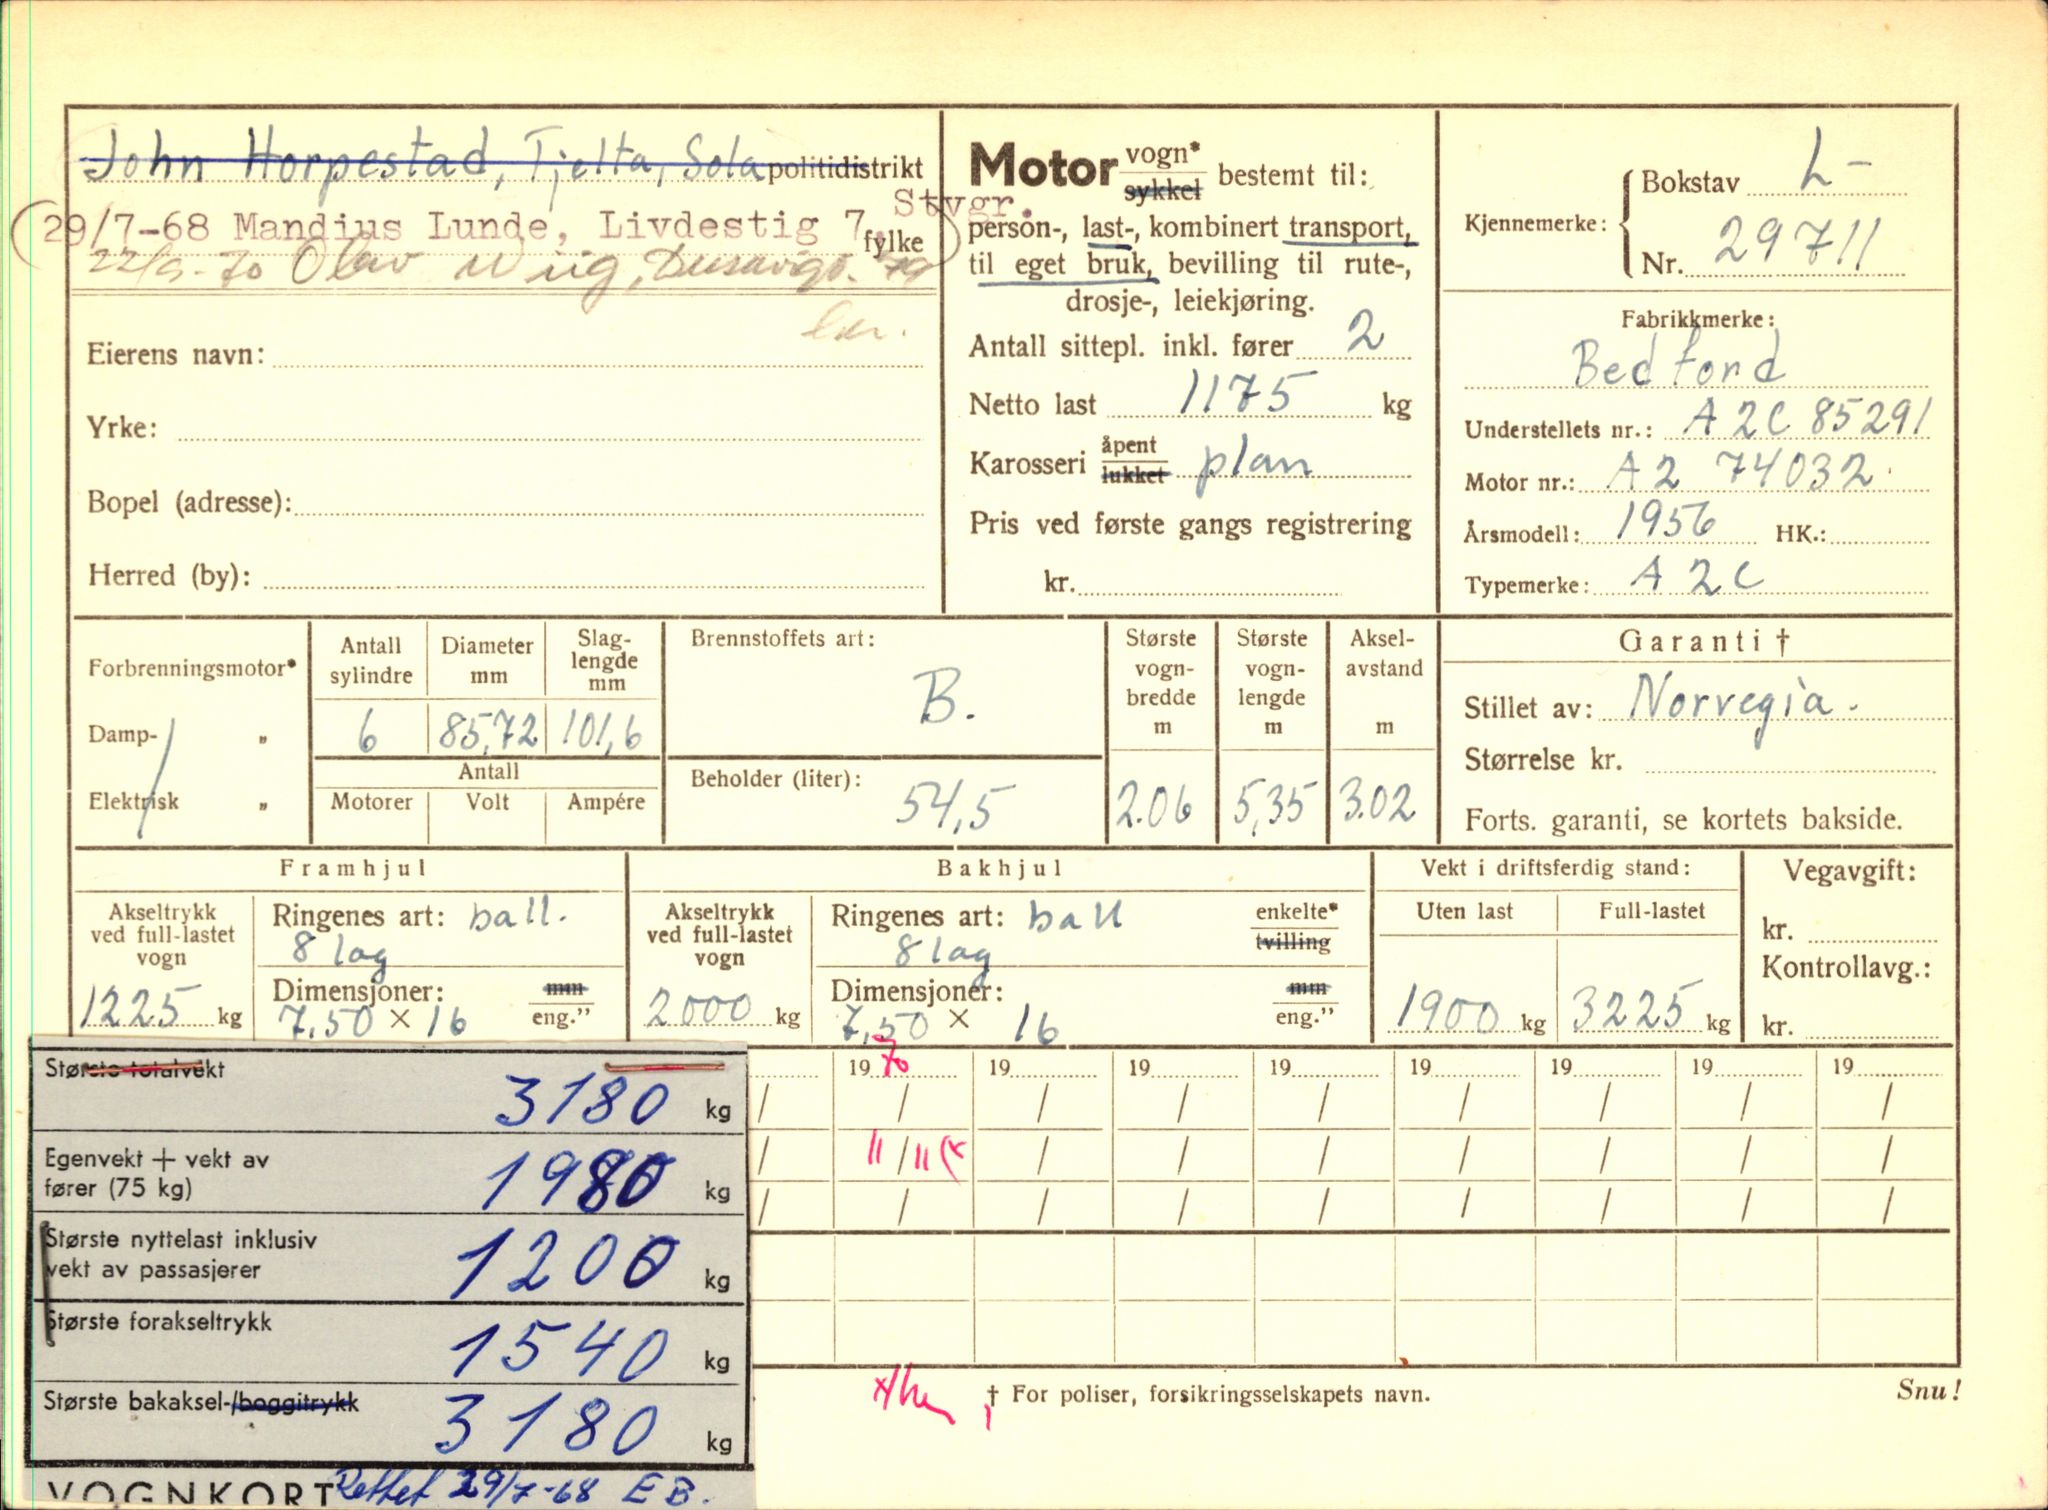 John Horpestad, Tjelta, Sola politidistrikt
(29/7-68 Mandius Lunde, Livdestig 7, Stvgr.) fylke
22/9-70 Olav Wiig,
Eierens navn:
Yrke:
Bopel (adresse):
Herred (by):
Motor vogn* sykkel bestemt til:
person-, last-, kombinert transport,
til eget bruk, bevilling til rute-,
drosje-, leiekjøring.
Antall sittepl. inkl. fører 2
Netto last 1175 kg
Karosseri åpent lukket plan
Pris ved første gangs registrering
kr.
Kjennemerke: Bokstav L-
Nr. 29711
Fabrikkmerke:
Bedford
Understellets nr.: A2C 85291
Motor nr.: A2 74032
Årsmodell: 1956 HK.:
Typemerke: A2C
Forbrenningsmotor*
Damp- „
Elektrisk „
Antall sylindre
6
Diameter mm
85,72
Slag-
lengde
mm
101,6
Antall
Motorer Volt Ampére
Brennstoffets art:
B.
Beholder (liter):
54,5
Største
vogn-
bredde
m
2.06
Største
vogn-
lengde
m
5,35
Aksel-
avstand
m
3.02
Garanti †
Stillet av: Norvegia.
Størrelse kr.
Forts. garanti, se kortets bakside.
Framhjul
Akseltrykk
ved full-lastet
vogn
1225 kg
Ringenes art: ball.
8 lag
Dimensjoner: mm
7,50 × 16 eng.”
Bakhjul
Akseltrykk
ved full-lastet
vogn
2000 kg
Ringenes art: ball enkelte*
8 lag tvilling
Dimensjoner: mm
7,50 × 16 eng.”
Vekt i driftsferdig stand:
Uten last Full-lastet
1900 kg 3225 kg
Vegavgift:
kr.
Kontrollavg.:
kr.
19 70 19 19 19 19 19 19 19
/ / / / / / / / /
/ 11/11 / / / / / / /
/ / / / / / / / /
Største totalvekt
3180 kg
Egenvekt + vekt av
fører (75 kg) 1980 kg
Største nyttelast inklusiv
vekt av passasjerer 1200 kg
Største forakseltrykk
1540 kg
Største bakaksel-/boggitrykk
3180 kg
VOGNKORT Rettet 29/7-68 EB.
† For poliser, forsikringsselskapets navn.
Snu!